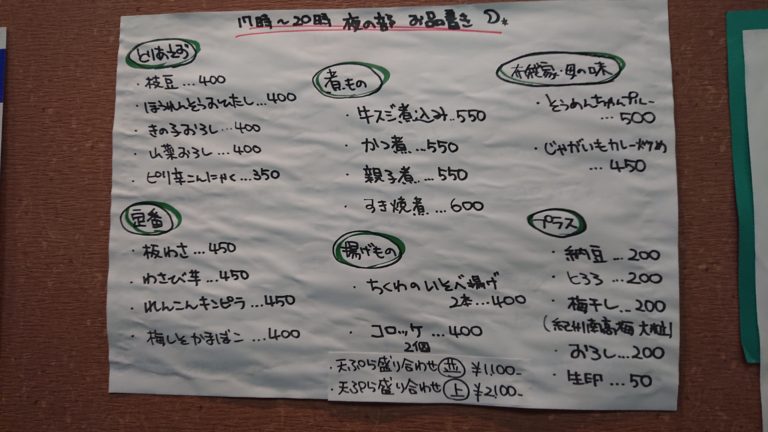 17時～20時 夜の部 お品書き
とりあえず
・枝豆...400
・ほうれんそうおひたし...400
・きの子おろし...400
・山菜おろし...400
・ピリ辛こんにゃく...350
定番
・板わさ...450
・わさび芋...450
・れんこんキンピラ...450
・梅しそかまぼこ...400
煮もの
・牛スジ煮込み..550
・かつ煮...550
・親子煮...550
・すき焼煮...600
揚げもの
・ちくわのいそべ揚げ
2本...400
・コロッケ...400
2個
・天ぷら盛り合わせ 並 ¥1,100-
・天ぷら盛り合わせ 上 ¥2,100-
我家・母の味
・そうめんちゃんプルー
...500
・じゃがいもカレー炒め
...450
プラス
・納豆...200
・とろろ...200
・梅干し...200
(紀州南高梅 大粒)
・おろし...200
・生卵...50